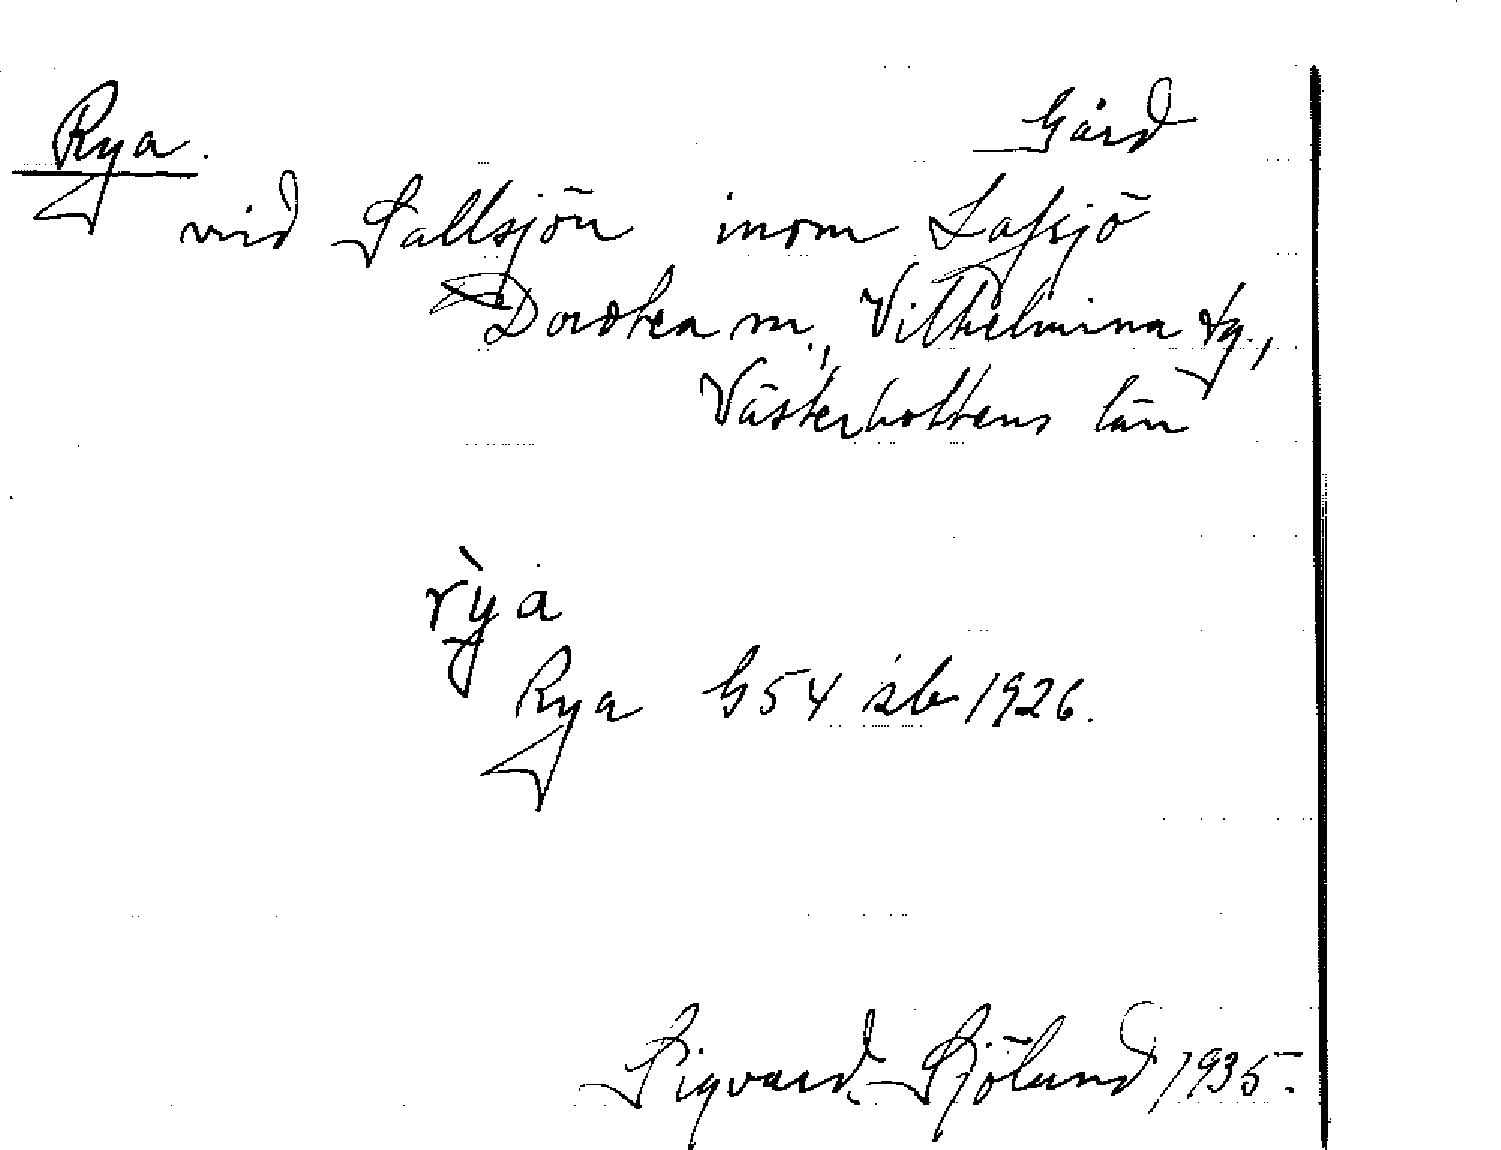 Rya. Gård
vid Sallsjön inom Lafsjö
Dorotea m., Vilhelmina tg.,
Västerbottens län
rỳa
Rya G54 äb 1926.
Sigvard Sjölund 1935.